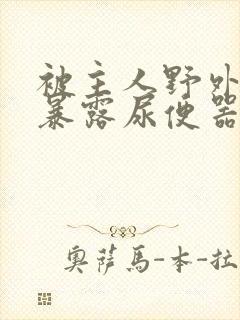 被主人野外
暴露尿便器
奥萨马-本-拉